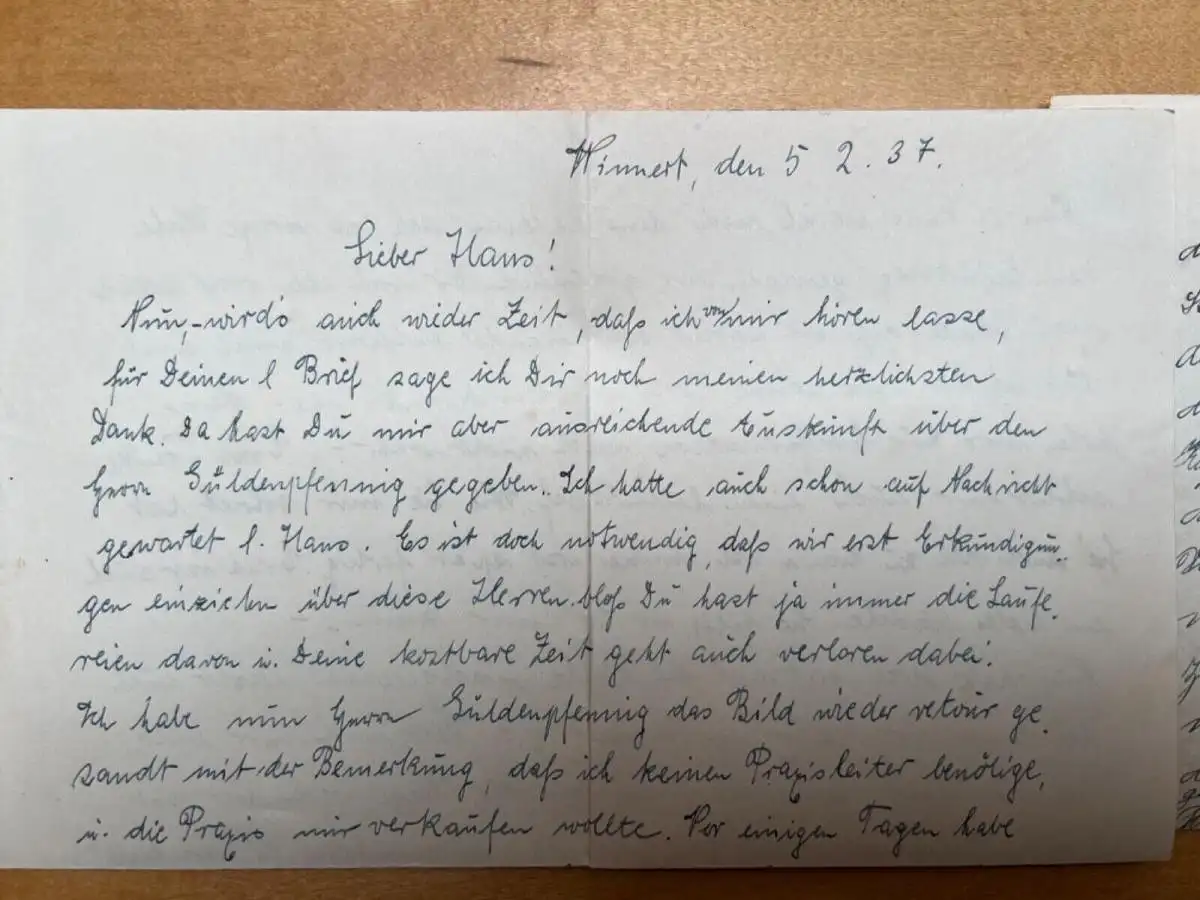 Winnert, den 5 2. 37.
Lieber Hans!
Nun,- wird's auch wieder Zeit, daß ich von mir hören lasse,
für Deinen l Brief sage ich Dir noch meinen herzlichsten
Dank. Da hast Du mir aber ausreichende Auskunft über den
Herrn Güldenpfennig gegeben. Ich hatte auch schon auf Nachricht
gewartet l. Hans. Es ist doch notwendig, daß wir erst Erkundigun-
gen einziehen über diese Herren. bloß Du hast ja immer die Laufe-
reien davon u. Deine kostbare Zeit geht auch verloren dabei.
Ich habe nun Herrn Güldenpfennig das Bild wieder retour ge-
sandt mit der Bemerkung, daß ich keinen Praxisleiter benötige,
u. die Praxis nur verkaufen wollte. Vor einigen Tagen habe